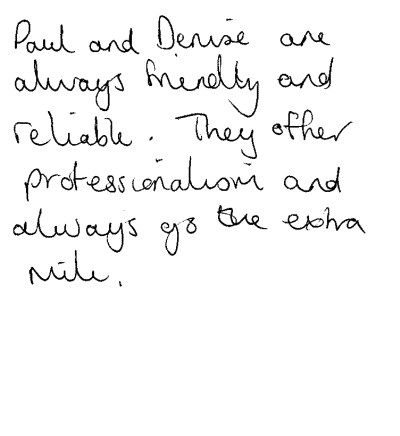 Paul and Denise are
always friendly and
reliable. They offer
professionalism and
always go the extra
mile.